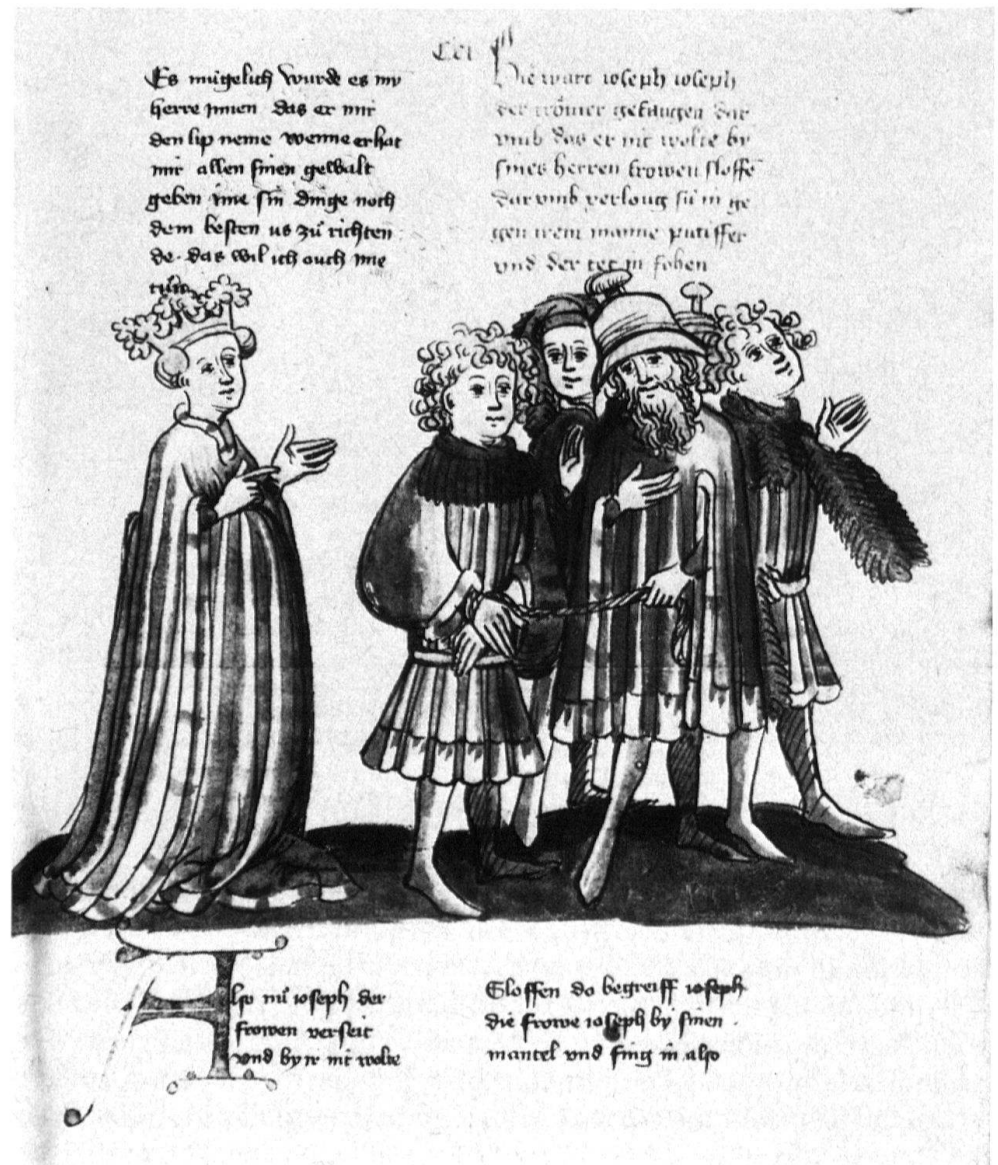 Es mügelich wurde es my
herre jnnen das er mir
den lip neme wenne er hat
mir allen sinen gewalt
geben ime sin dinge noch
dem besten us zů richten
de. das wil ich ouch ime
tůn
Cci
Hie wart ioseph ioseph
der trömer gefangen dar
vmb das er nit wolte by
sines herren frowen sloffē
dar vmb verloug sü in ge
gen irem manne putiffer
vnd der tet in fohen
Also nů ioseph der
frowen verseit
vnd by ir nit wolte
Sloffen do begreiff ioseph
die frowe ioseph by sinen
mantel vnd fing in also